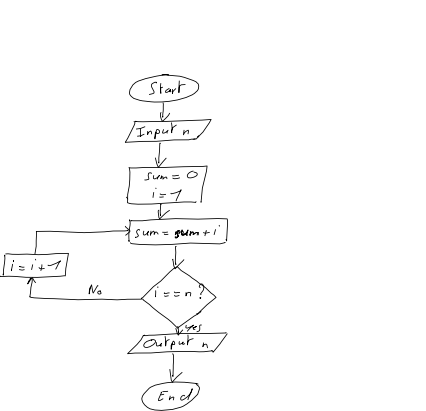 Start
Input n
sum = 0
i = 1
sum = sum + i
i = i + 1
i == n ?
No
Yes
Output n
End